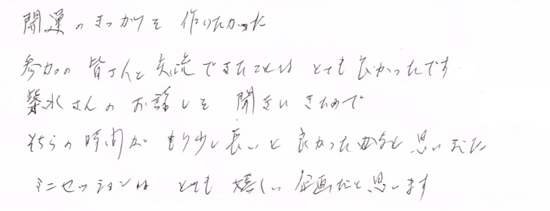 開運のきっかけを 作りたかった
参加の皆さんと交流できたことは とても良かったです
紫水さんのお話しを 聞きにきたので
そちらの時間が もう少し長いと 良かったかなと思いました
ミニセッションは とても 嬉しい 企画だと思います